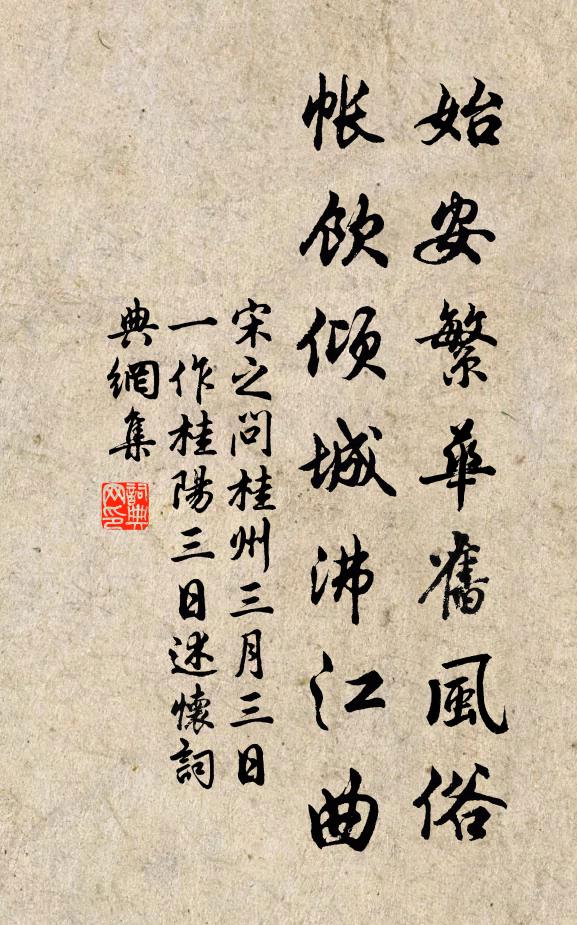 始安繁華舊風俗
帳飲傾城沸江曲
宋之問桂州三月三日
一作桂陽三日述懷詞
典網集
詞典網印